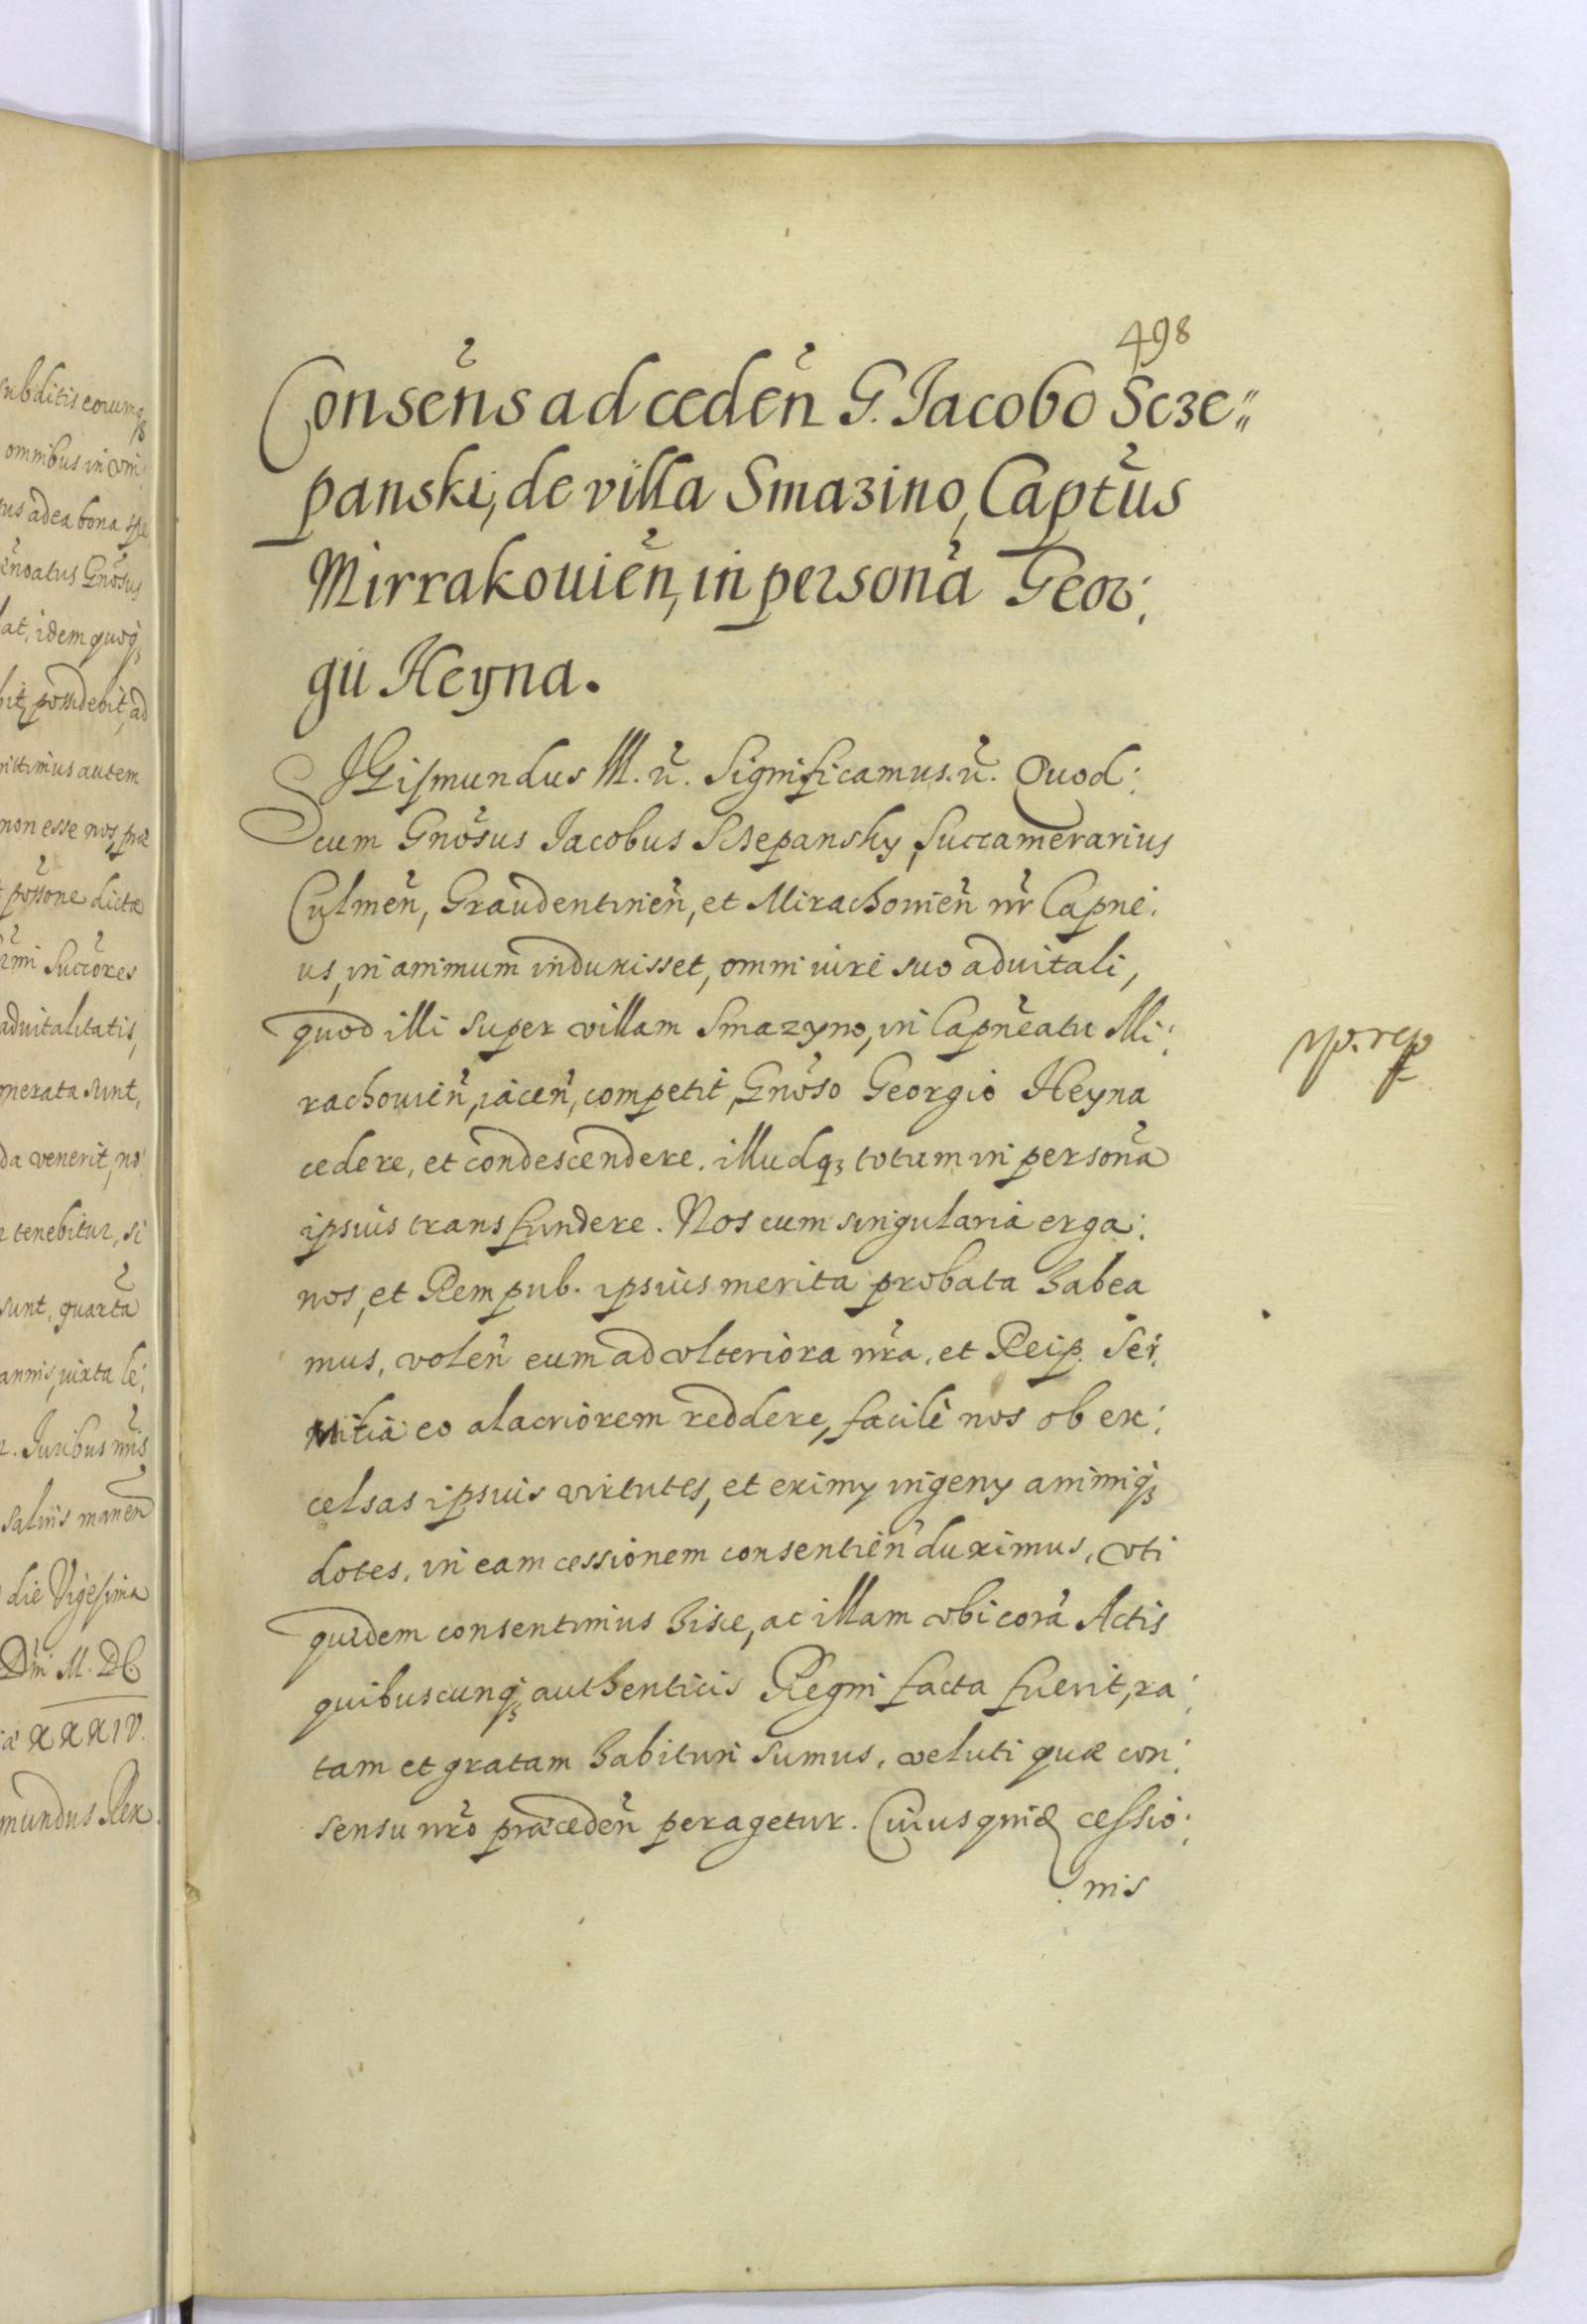 subditis eorumq;
omnibus in om
us ad ea bona spe
noatus Gnosus
at, idem quoq;
bit, possidebit, ad
mittimus autem
non esse nos, præ
possone dictæ
mi Succores
advitalitatis,
merata sunt,
da venerit, no
tenebitur, si
sunt, quarta
annis, iuxta le:
Iuribus nris
salvis manen
die Vigesima
Dni M. DC
XXXIV.
mundus Rex.
498
Consens ad ceden G. Jacobo Scze„
panski, de villa Smazino, Captus
Mirrakouien, in persona Geor:
gii Heyna.
SIGismundus III. &. Significamus. &. Quod:
cum Gnosus Jacobus Sczepansky, Succamerarius
Culmen, Graudentinen, et Mirachouien nr Capne:
us, in animum induxisset, omni iure suo advitali,
quod illi super villam Smazyno, in Capneatu Mi:
rachouien, iacen, competit, Gnoso Georgio Heyna
cedere, et condescendere. illudq; totum in persona
ipsius transfundere. Nos cum singularia erga:
nos, et Rempub. ipsius merita probata habea
mus, volen eum ad vlteriora nra, et Reip. Ser:
vitia eo alacriorem reddere, facilè nos ob ex:
celsas ipsius virtutes, et eximy ingeny animiq;
dotes, in eam cessionem consentien duximus, vti
quidem consentimus hisce, ac illam vbi corā Actis
quibuscunq; authenticis Regni facta fuerit, ra:
tam et gratam habituri sumus, veluti quæ con:
sensu nro præceden peragetur. Cuiusquid cessio:
nis